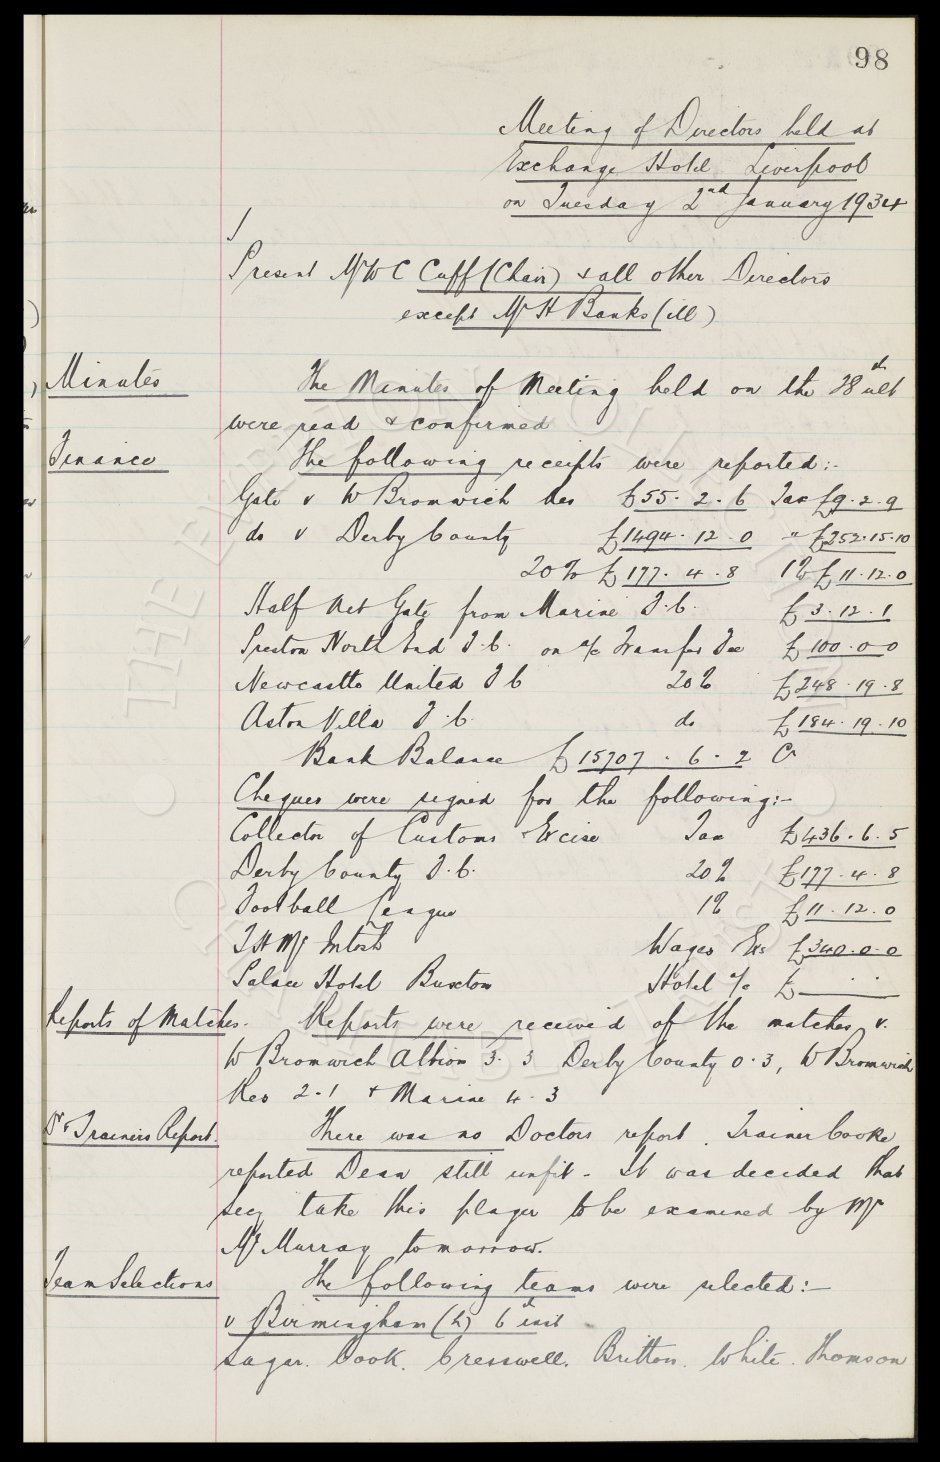 98
Meeting of Directors held at
Exchange Hotel Liverpool
on Tuesday 2nd January 1934
Present Mr W C Cuff (Chair) & all other Directors
except Mr H Banks (ill)
Minutes The Minutes of Meeting held on the 28th ult
were read & confirmed
Finance The following receipts were reported:-
Gate v W Bromwich Res £55. 2. 6 Tax £9. 2. 9
do v Derby County £1494. 12. 0 " £252. 15. 10
20% £177. 4. 8 1% £11. 12. 0
Half Net Gate from Marine F.C. £3. 12. 1
Preston North End F.C. on a/c Transfer Fee £100. 0 0
Newcastle United F C 20% £248. 19. 8
Aston Villa F.C. do £184. 19. 10
Bank Balance £15707. 6. 2 Cr
Cheques were signed for the following:-
Collector of Customs & Excise Tax £436. 6. 5
Derby County F.C. 20% £177. 4. 8
Football League 1% £11. 12. 0
T H McIntosh Wages Etc £340. 0. 0
Palace Hotel Buxton Hotel a/c £
Reports of Matches. Reports were received of the matches v.
W Bromwich Albion 3. 3 Derby County 0. 3, W Bromwich
Res 2. 1 & Marine 4. 3
Dr & Trainers Report. There was no Doctors report. Trainer Cooke
reported Dean still unfit - It was decided that
Secy take this player to be examined by Mr
McMurray tomorrow.
Team Selections The following teams were selected:-
v Birmingham (h) 6th inst
Sagar. Cook. Cresswell. Britton. White. Thomson